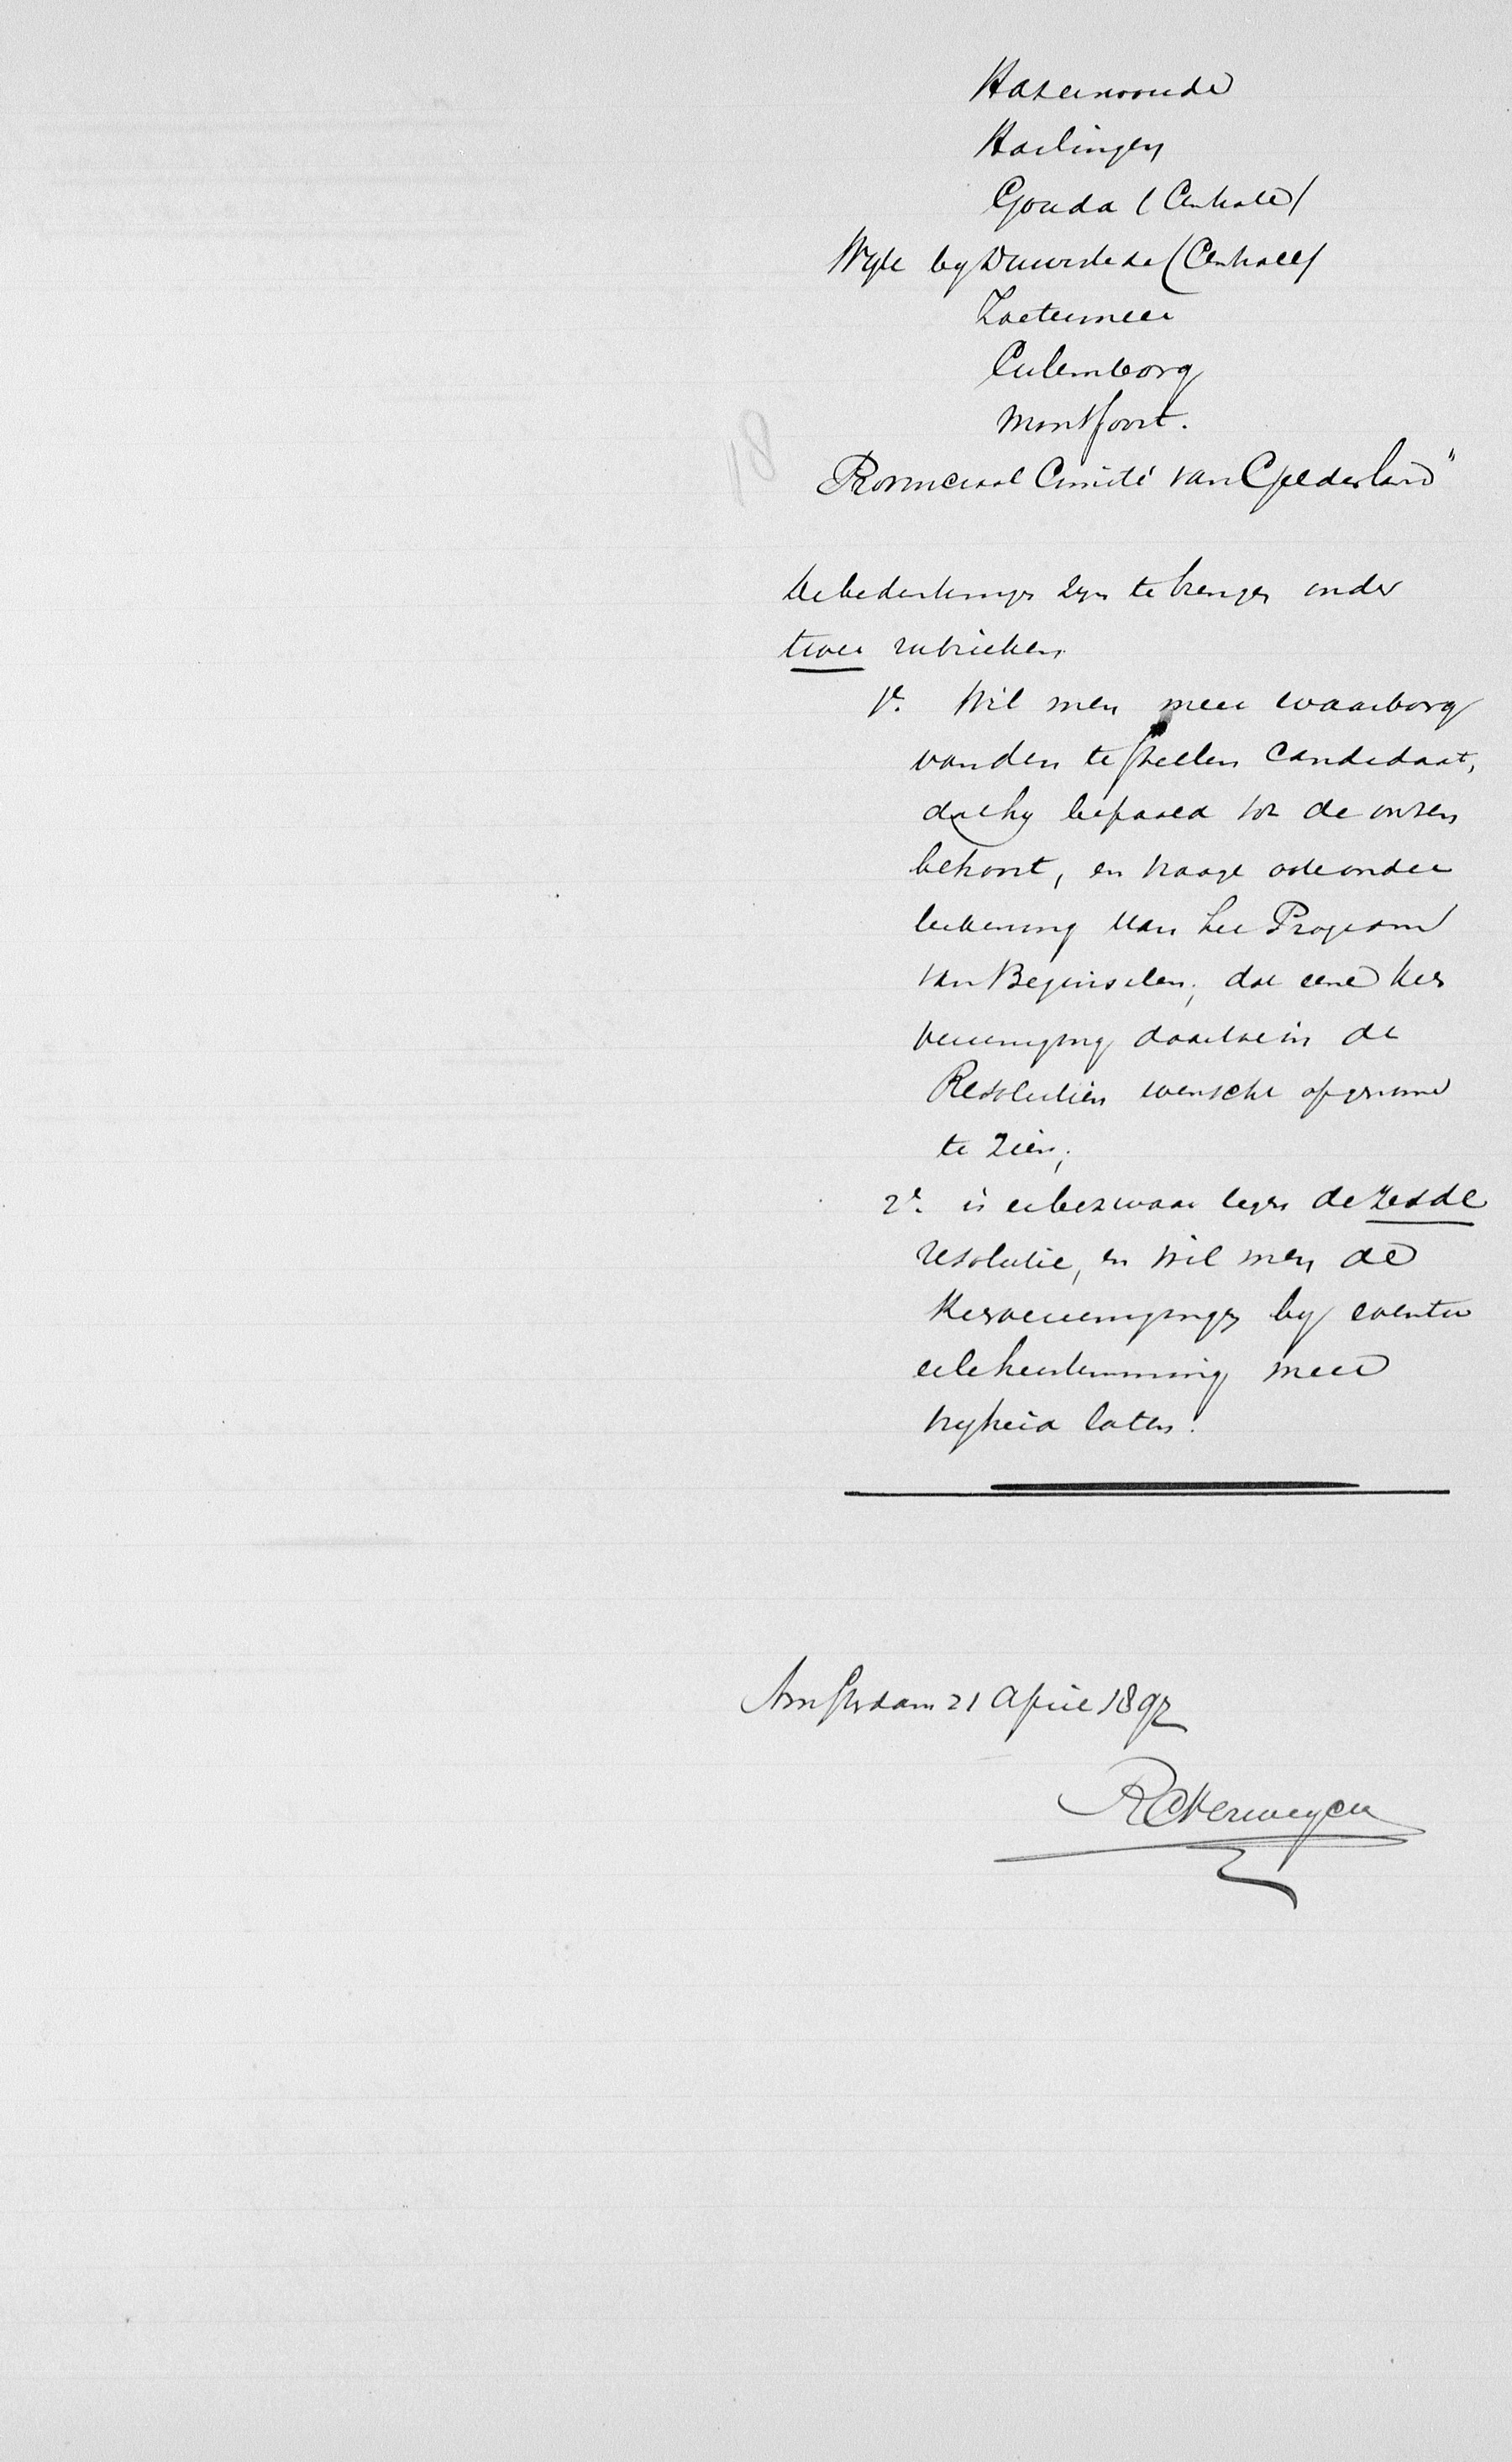 Hazerswoude
Harlingen
Gouda (Centrale)
Wijk bij Duurstede (Centrale)
Zoetermeer
Culemborg
Montfoort.
18
"Provinciaal Comité van Gelderland"
De bedenkingen zijn te brengen onder
twee rubrieken
1e. Wil men meer waarborg
van den te stellen candidaat,
dat hij bepaald tot de onzen
behoort, en vraagt onder
teekening van het Program
van Beginselen; dat eene Kies
vereeniging daarvan in de
Resolutiën wenscht opgenomen
te zien;
2e. is er bezwaar tegen de zesde
resolutie, en wil men de
Kiesvereenigingen bij eventu
eele herstemming meer
vrijheid laten.
Amsterdam 21 April 1897